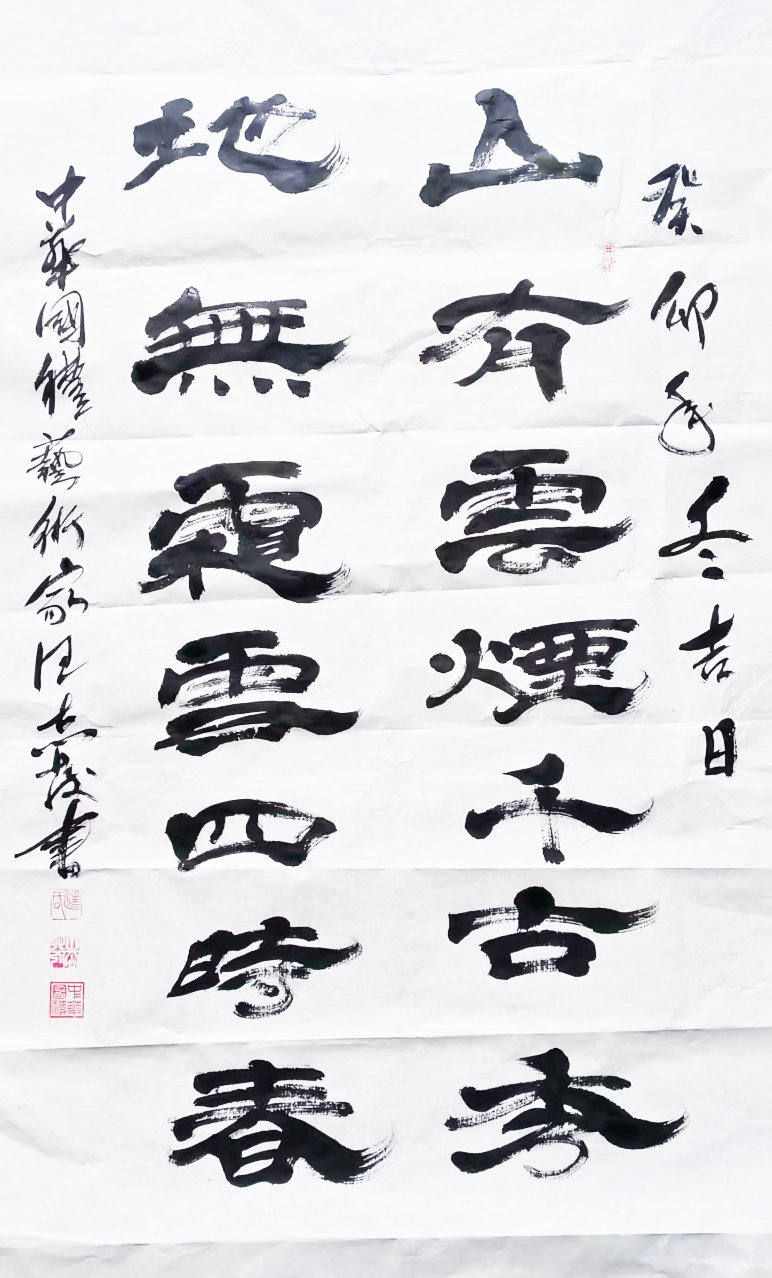 癸卯年冬吉日
山有雲煙千古秀
地無霜雪四時春
中華國禮藝術家汪志書